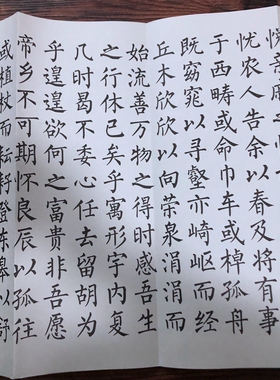 忧农人告余以春及将有事
于西畴或命巾车或棹孤舟
既窈窕以寻壑亦崎岖而经
丘木欣欣以向荣泉涓涓而
始流善万物之得时感吾生
之行休已矣乎寓形宇内复
几时曷不委心任去留胡为
乎遑遑欲何之富贵非吾愿
帝乡不可期怀良辰以孤往
或植杖而耘耔登东皋以舒